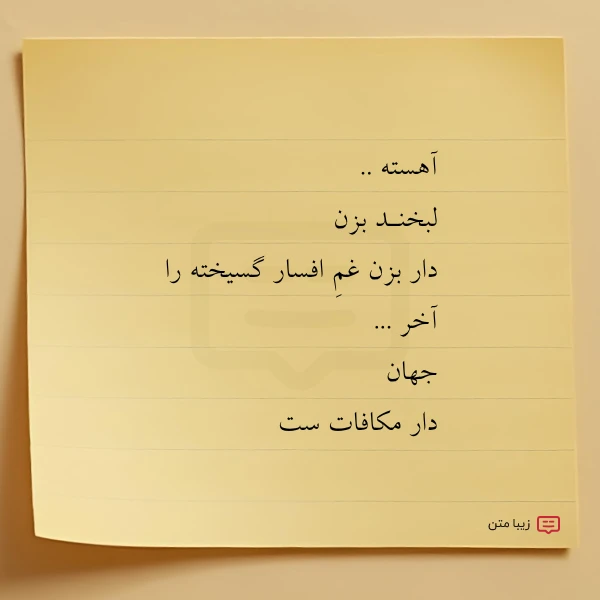 آهسته ..
لبخنـد بزن
دار بزن غمِ افسار گسیخته را
آخر ...
جهان
دار مکافات ست
زیبا متن